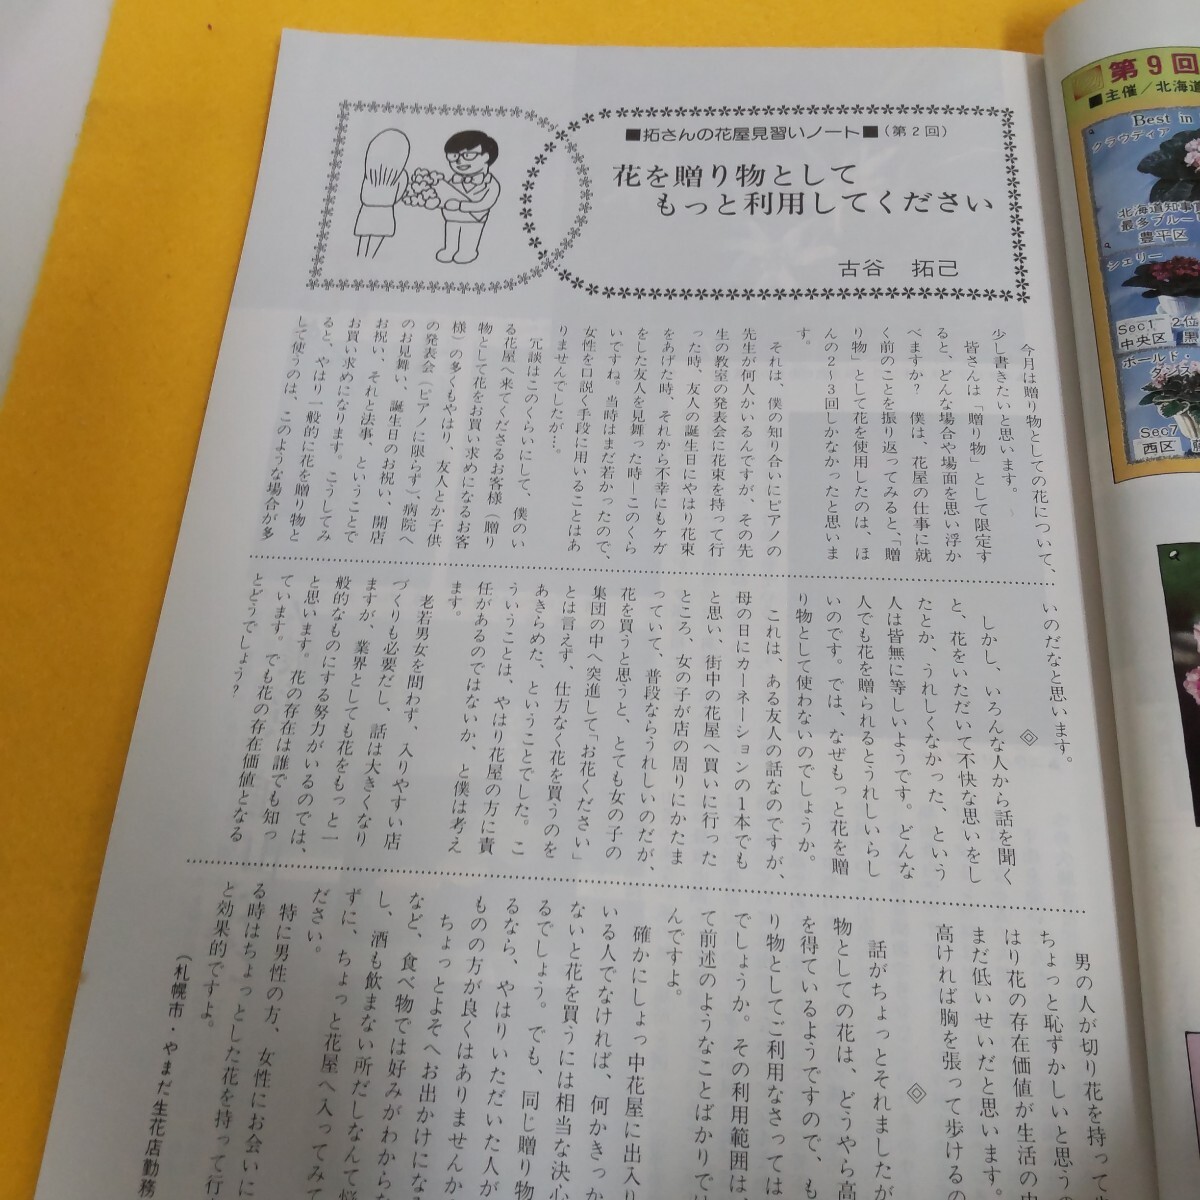 ■拓さんの花屋見習いノート■(第2回)
花を贈り物として
もっと利用してください
古谷 拓己
今月は贈り物としての花について、
少し書きたいと思います。
皆さんは「贈り物」として限定す
ると、どんな場合や場面を思い浮か
べますか? 僕は、花屋の仕事に就
く前のことを振り返ってみると、「贈
り物」として花を使用したのは、ほ
んの2~3回しかなかったと思いま
す。
それは、僕の知り合いにピアノの
先生が何人かいるんですが、その先
生の教室の発表会に花束を持って行
った時、友人の誕生日にやはり花束
をあげた時、それから不幸にもケガ
をした友人を見舞った時―このくら
いですね。当時はまだ若かったので、
女性を口説く手段に用いることはあ
りませんでしたが…。
冗談はこのくらいにして、僕のい
る花屋へ来てくださるお客様(贈り
物として花をお買い求めになるお客
様)の多くもやはり、友人とか子供
の発表会(ピアノに限らず)、病院へ
のお見舞い、誕生日のお祝い、開店
お祝い、それと法事、ということで
お買い求めになります。こうしてみ
ると、やはり一般的に花を贈り物と
して使うのは、このような場合が多
いのだなと思います。
◇
しかし、いろんな人から話を聞く
と、花をいただいて不快な思いをし
たとか、うれしくなかった、という
人は皆無に等しいようです。どんな
人でも花を贈られるとうれしいらし
いのです。では、なぜもっと花を贈
り物として使わないのでしょうか。
これは、ある友人の話なのですが、
母の日にカーネーションの1本でも
と思い、街中の花屋へ買いに行った
ところ、女の子が店の周りにかたま
っていて、普段ならうれしいのだが、
花を買うと思うと、とても女の子の
集団の中へ突進して「お花ください」
とは言えず、仕方なく花を買うのを
あきらめた、ということでした。こ
ういうことは、やはり花屋の方に責
任があるのではないか、と僕は考え
ます。
老若男女を問わず、入りやすい店
づくりも必要だし、話は大きくなり
ますが、業界としても花をもっと一
般的なものにする努力がいるのでは、
と思います。花の存在は誰でも知っ
ています。でも花の存在価値となる
とどうでしょう?
男の人が切り花を持って
ちょっと恥ずかしいと思う
はり花の存在価値が生活の中
まだ低いせいだと思います。
高ければ胸を張って歩けるの
◇
話がちょっとそれましたが
物としての花は、どうやら高
を得ているようですので、も
り物としてご利用なさっては
でしょうか。その利用範囲は、
て前述のようなことばかりでは
んですよ。
確かにしょっ中花屋に出入り
いる人でなければ、何かきっか
ないと花を買うには相当な決心
るでしょう。でも、同じ贈り物
るなら、やはりいただいた人が
ものの方が良くはありませんか
ちょっとよそへお出かけになる
など、食べ物では好みがわからな
し、酒も飲まない所だしなんて悩
ずに、ちょっと花屋へ入ってみて
ださい。
特に男性の方、女性にお会いに
る時はちょっとした花を持って行
と効果的ですよ。
(札幌市・やまだ生花店勤務
第9回
■主催/北海道
Best in
クラウディア
北海道知事賞
最多ブルー
豊平区
シェリー
Sec1 2位
中央区
ボールド・
ダンス
Sec7
西区